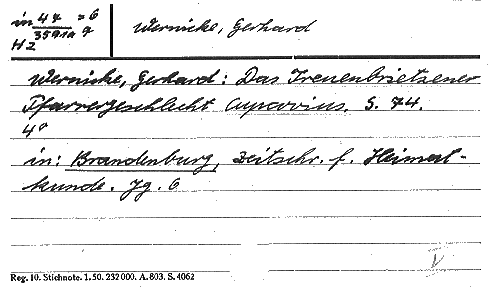 in 47 = 6
35910 9
HZ
Wernicke, Gerhard
Wernicke, Gerhard: Das Treuenbrietzener
Pfarrergeschlecht Cuprovius. S. 74.
4°
in: Brandenburg, Zeitschr. f. Heimat-
kunde. Jg. 6
V
Reg. 10. Stichnote. 1. 50. 232 000. A. 803. S. 4062